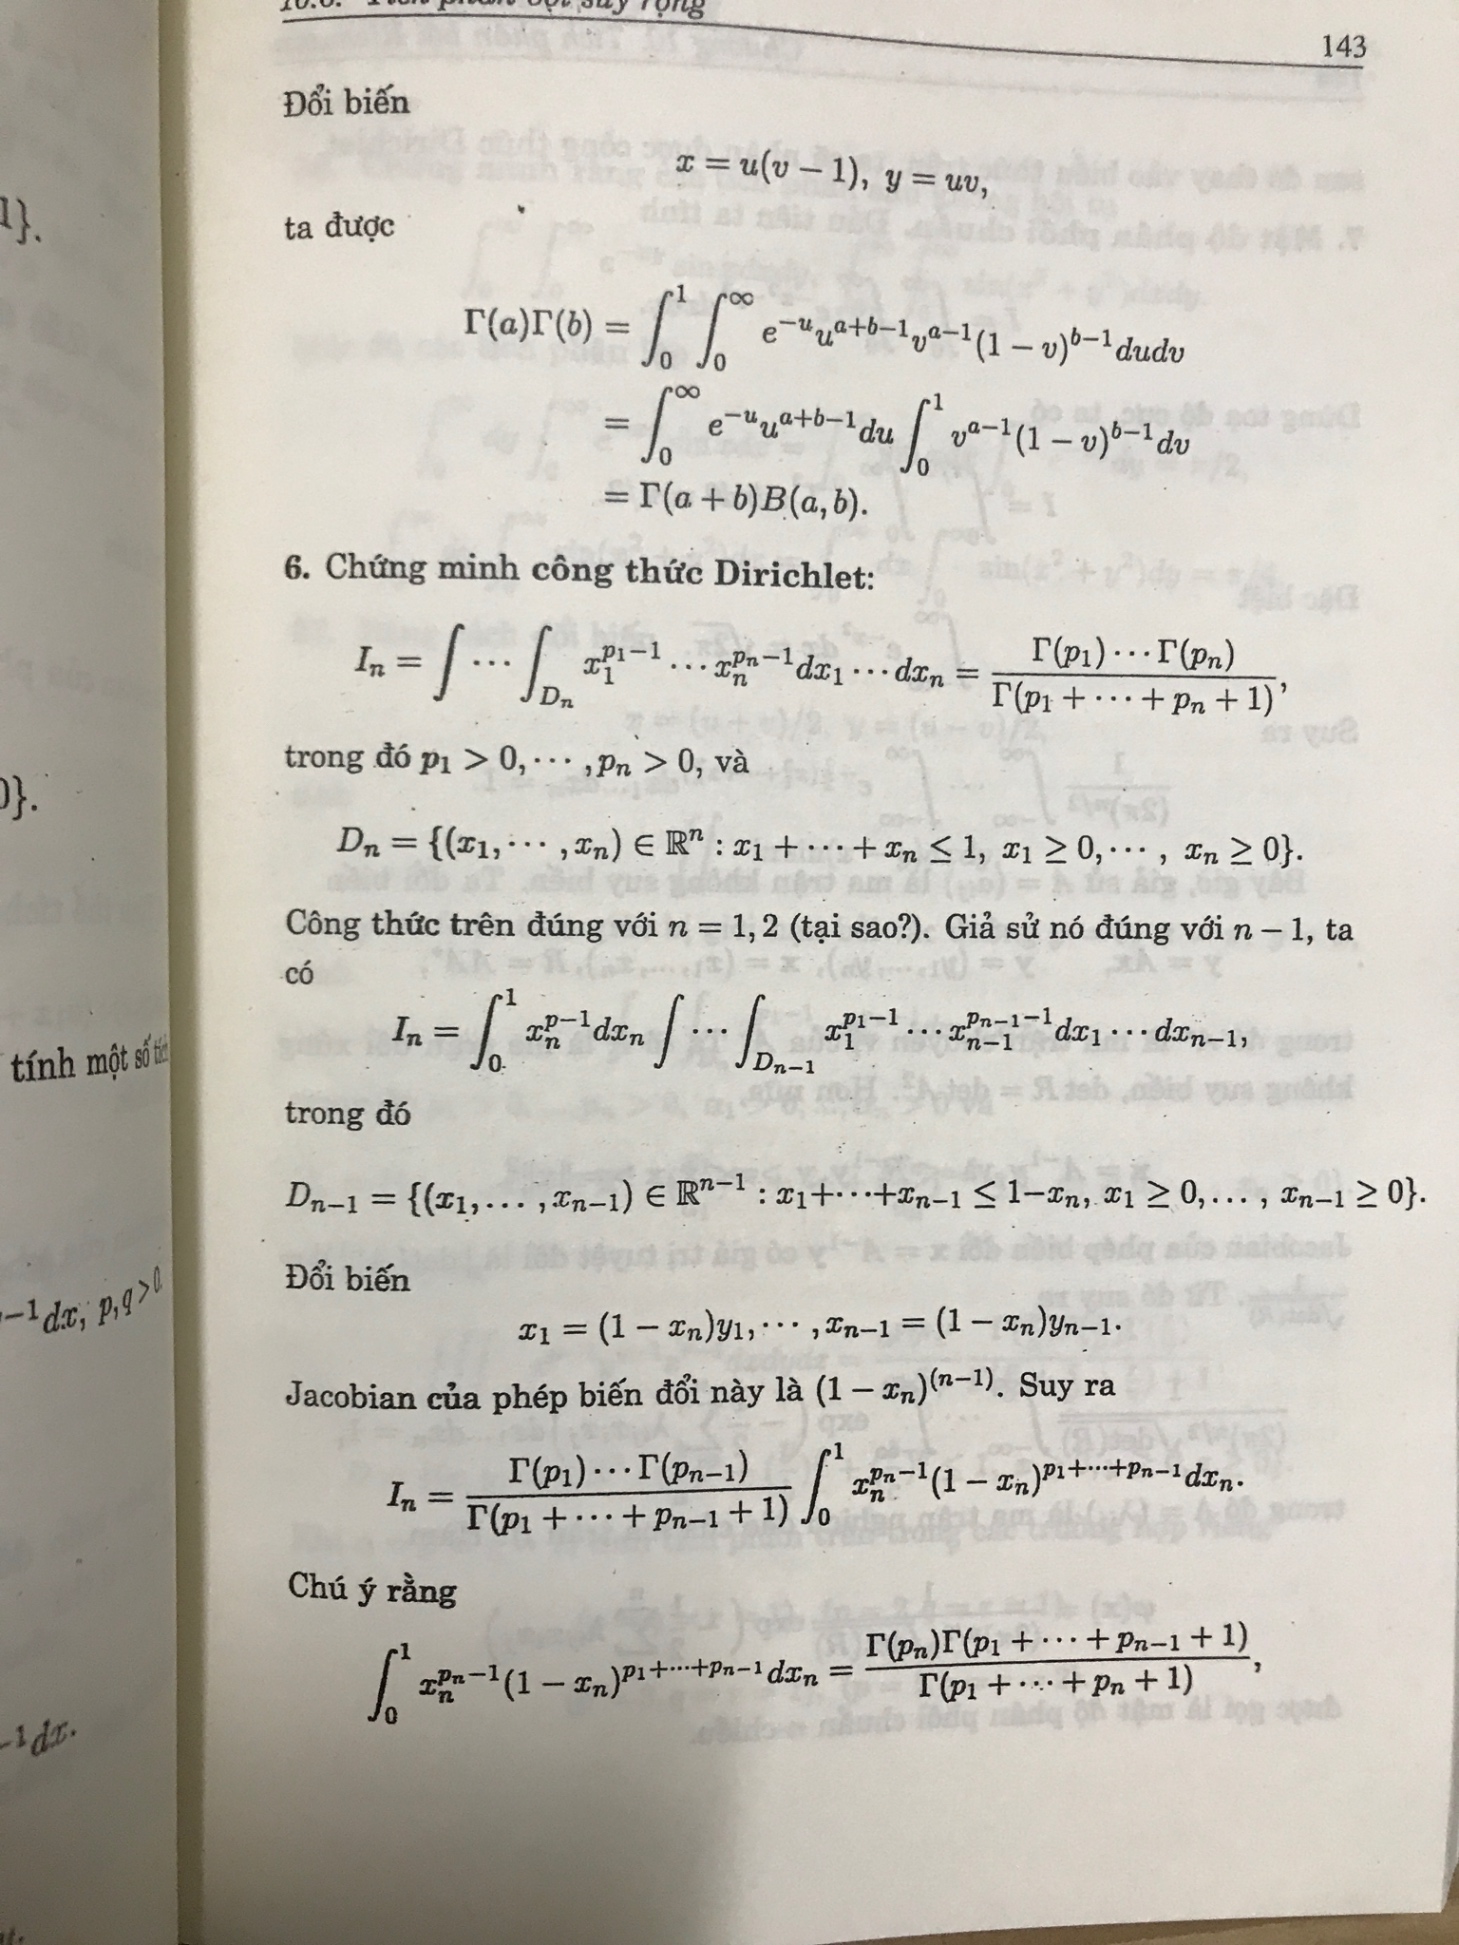 143
Đổi biến
x = u(v − 1), y = uv,
ta được
Γ(a)Γ(b) = ∫₀¹ ∫₀^∞ e^{−u}u^{a+b−1}v^{a−1}(1 − v)^{b−1}dudv
= ∫₀^∞ e^{−u}u^{a+b−1}du ∫₀¹ v^{a−1}(1 − v)^{b−1}dv
= Γ(a + b)B(a, b).
6. Chứng minh công thức Dirichlet:
I_n = ∫ ⋯ ∫_{D_n} x_1^{p_1−1} ⋯ x_n^{p_n−1}dx_1 ⋯ dx_n = \frac{Γ(p_1) ⋯ Γ(p_n)}{Γ(p_1 + ⋯ + p_n + 1)},
trong đó p_1 > 0, ⋯ , p_n > 0, và
D_n = {(x_1, ⋯ , x_n) ∈ ℝ^n : x_1 + ⋯ + x_n ≤ 1, x_1 ≥ 0, ⋯ , x_n ≥ 0}.
Công thức trên đúng với n = 1, 2 (tại sao?). Giả sử nó đúng với n − 1, ta
có
I_n = ∫₀¹ x_n^{p−1}dx_n ∫ ⋯ ∫_{D_{n−1}} x_1^{p_1−1} ⋯ x_{n−1}^{p_{n−1}−1}dx_1 ⋯ dx_{n−1},
trong đó
D_{n−1} = {(x_1, … , x_{n−1}) ∈ ℝ^{n−1} : x_1+⋯+x_{n−1} ≤ 1−x_n, x_1 ≥ 0, … , x_{n−1} ≥ 0}.
Đổi biến
x_1 = (1 − x_n)y_1, ⋯ , x_{n−1} = (1 − x_n)y_{n−1}.
Jacobian của phép biến đổi này là (1 − x_n)^{(n−1)}. Suy ra
I_n = \frac{Γ(p_1) ⋯ Γ(p_{n−1})}{Γ(p_1 + ⋯ + p_{n−1} + 1)} ∫₀¹ x_n^{p_n−1}(1 − x_n)^{p_1+⋯+p_{n−1}}dx_n.
Chú ý rằng
∫₀¹ x_n^{p_n−1}(1 − x_n)^{p_1+⋯+p_{n−1}}dx_n = \frac{Γ(p_n)Γ(p_1 + ⋯ + p_{n−1} + 1)}{Γ(p_1 + ⋯ + p_n + 1)},
1}.
0}.
tính một số
−1 dx, p, q > 0
−1 dx.